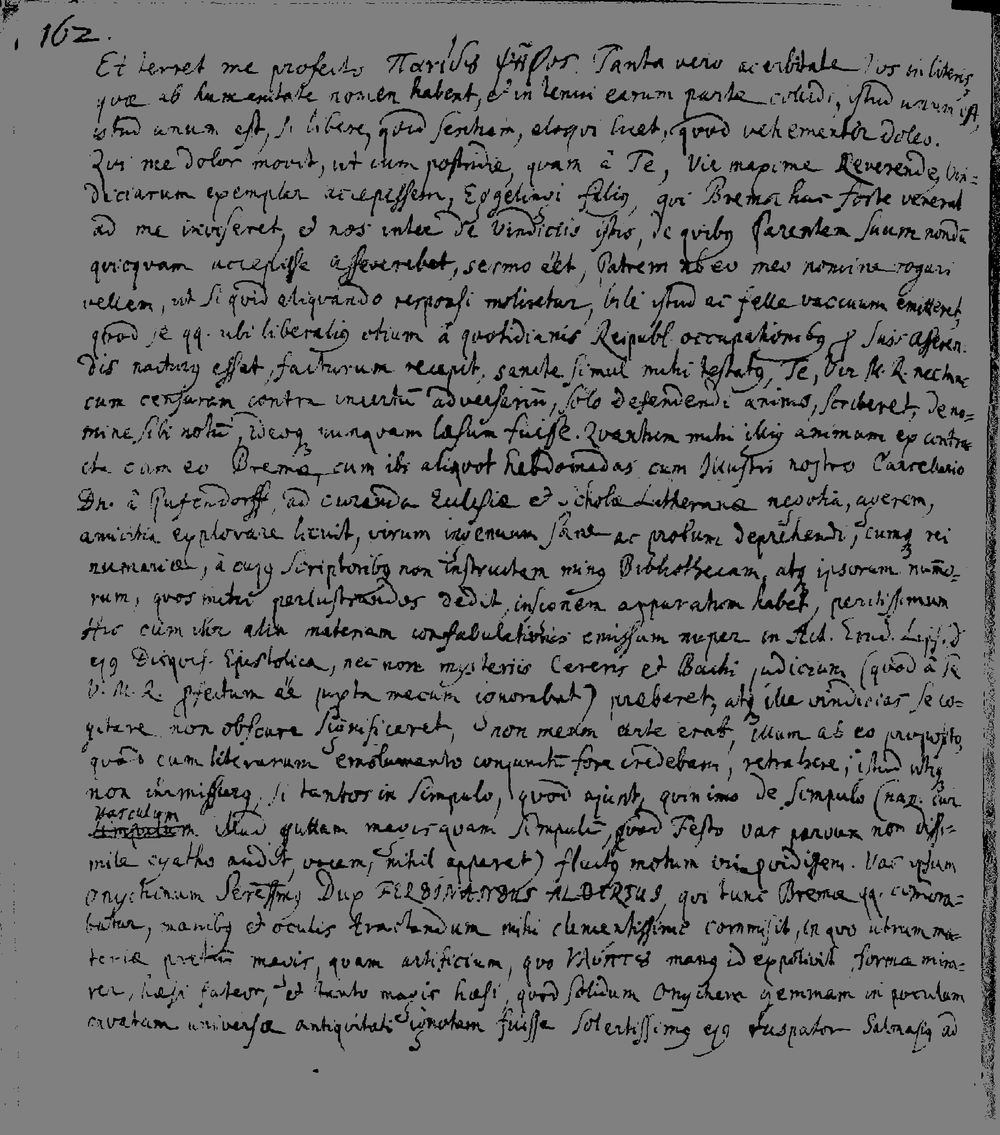 162.
Et terret me profecto Παρίδος ψῆφος. Tanta vero acerbitate Vos in literis,
quæ ab humanitate nomen habent, et in tenui earum parte collidi, istud unum est,
istud unum est, si libere, quid sentiam, eloqui licet, quod vehementer doleo.
Qui me dolor movit, ut cum postridie, quam â Te, Vir maxime Reverende, Vin=
diciarum exemplar accepissem, Eggelingi filiq, qui Brema huc forte venerat
ad me inviseret, et nos inter de Vindiciis istis, de quibq Parentem suum nondū
quicquam accepisse asseverabat, sermo ēet, Patrem ab eo meo nomine rogari
vellem, ut si quid aliquando responsi moliretur, bile istud ac felle vacuum emitteret,
quod se qq. ubi liberaliq otium â quotidianis Reipubl. occupationibq suis asseren-
dis nactuq esset, facturum recepit, sancte simul mihi testatq, Te, Vir M. R. nec hanc
cum censuram contra incertū adversariū, solo defendendi animo, scriberet, de no=
mine sibi notū, ideoq nunquam læsum fuisse. Quantum mihi illiq animum ex contra=
cta cum eo Bremæ, cum ibi aliquot hebdomadas cum Illustri nostro Cancellario
Dn. â Pufendorff, ad curanda Ecclesiæ et Scholæ Lutheranæ negotia, agerem,
amicitia explorare licuit, virum ingenuum sane ac probum deprehendi, cumq rei
numariæ, â cujq scriptoribq non instructam minq Bibliothecam, atq ipsorum num̄o-
rum, quos mihi perlustrandos dedit, insignem apparatum habet, peritissimum
Hic cum inter alia materiam confabulationis emissum nuper in Act. Erud. Lips. d
ejq Disquis. Epistolica, nec non mysteriis Cereris et Bachi judicium (quod â Te
V. M. R. profectum ēe juxta mecum ignorabat) præberet, atq ille vindicias se co-
gitare non obscure significaret, non meum ante erat, illum ab eo proposito,
quod cum literarum emolumento conjunctū fore credebam, retrahere, istud utiq
non in missurq, si tantos in simpulo, quod ajunt, quin imo de simpulo (nam cur
vasculum
simpulum illud guttam magis quam simpulū, quod Festo vas parvum non dissi-
mile cyatho audit, vocem, nihil apparet) fluctq motum iri prvidissem. Vas ipsum
Onychinum Serēssimq Dux FERDINANDUS ALBERTUS, qui tunc Bremæ qq. commora-
batur, manibq et oculis tractandum mihi clementissime commisit, in quo utrum ma-
teriæ pretiū magis, quam artificium, quo manq id expolivit formæ mira-
rer, hæsi fateor, et tanto magis hæsi, quod solidum Onychem gemmam in poculum
cavatam universæ antiquitati ignotam fuisse solertissimq ejq ruspator Salmasiq ad